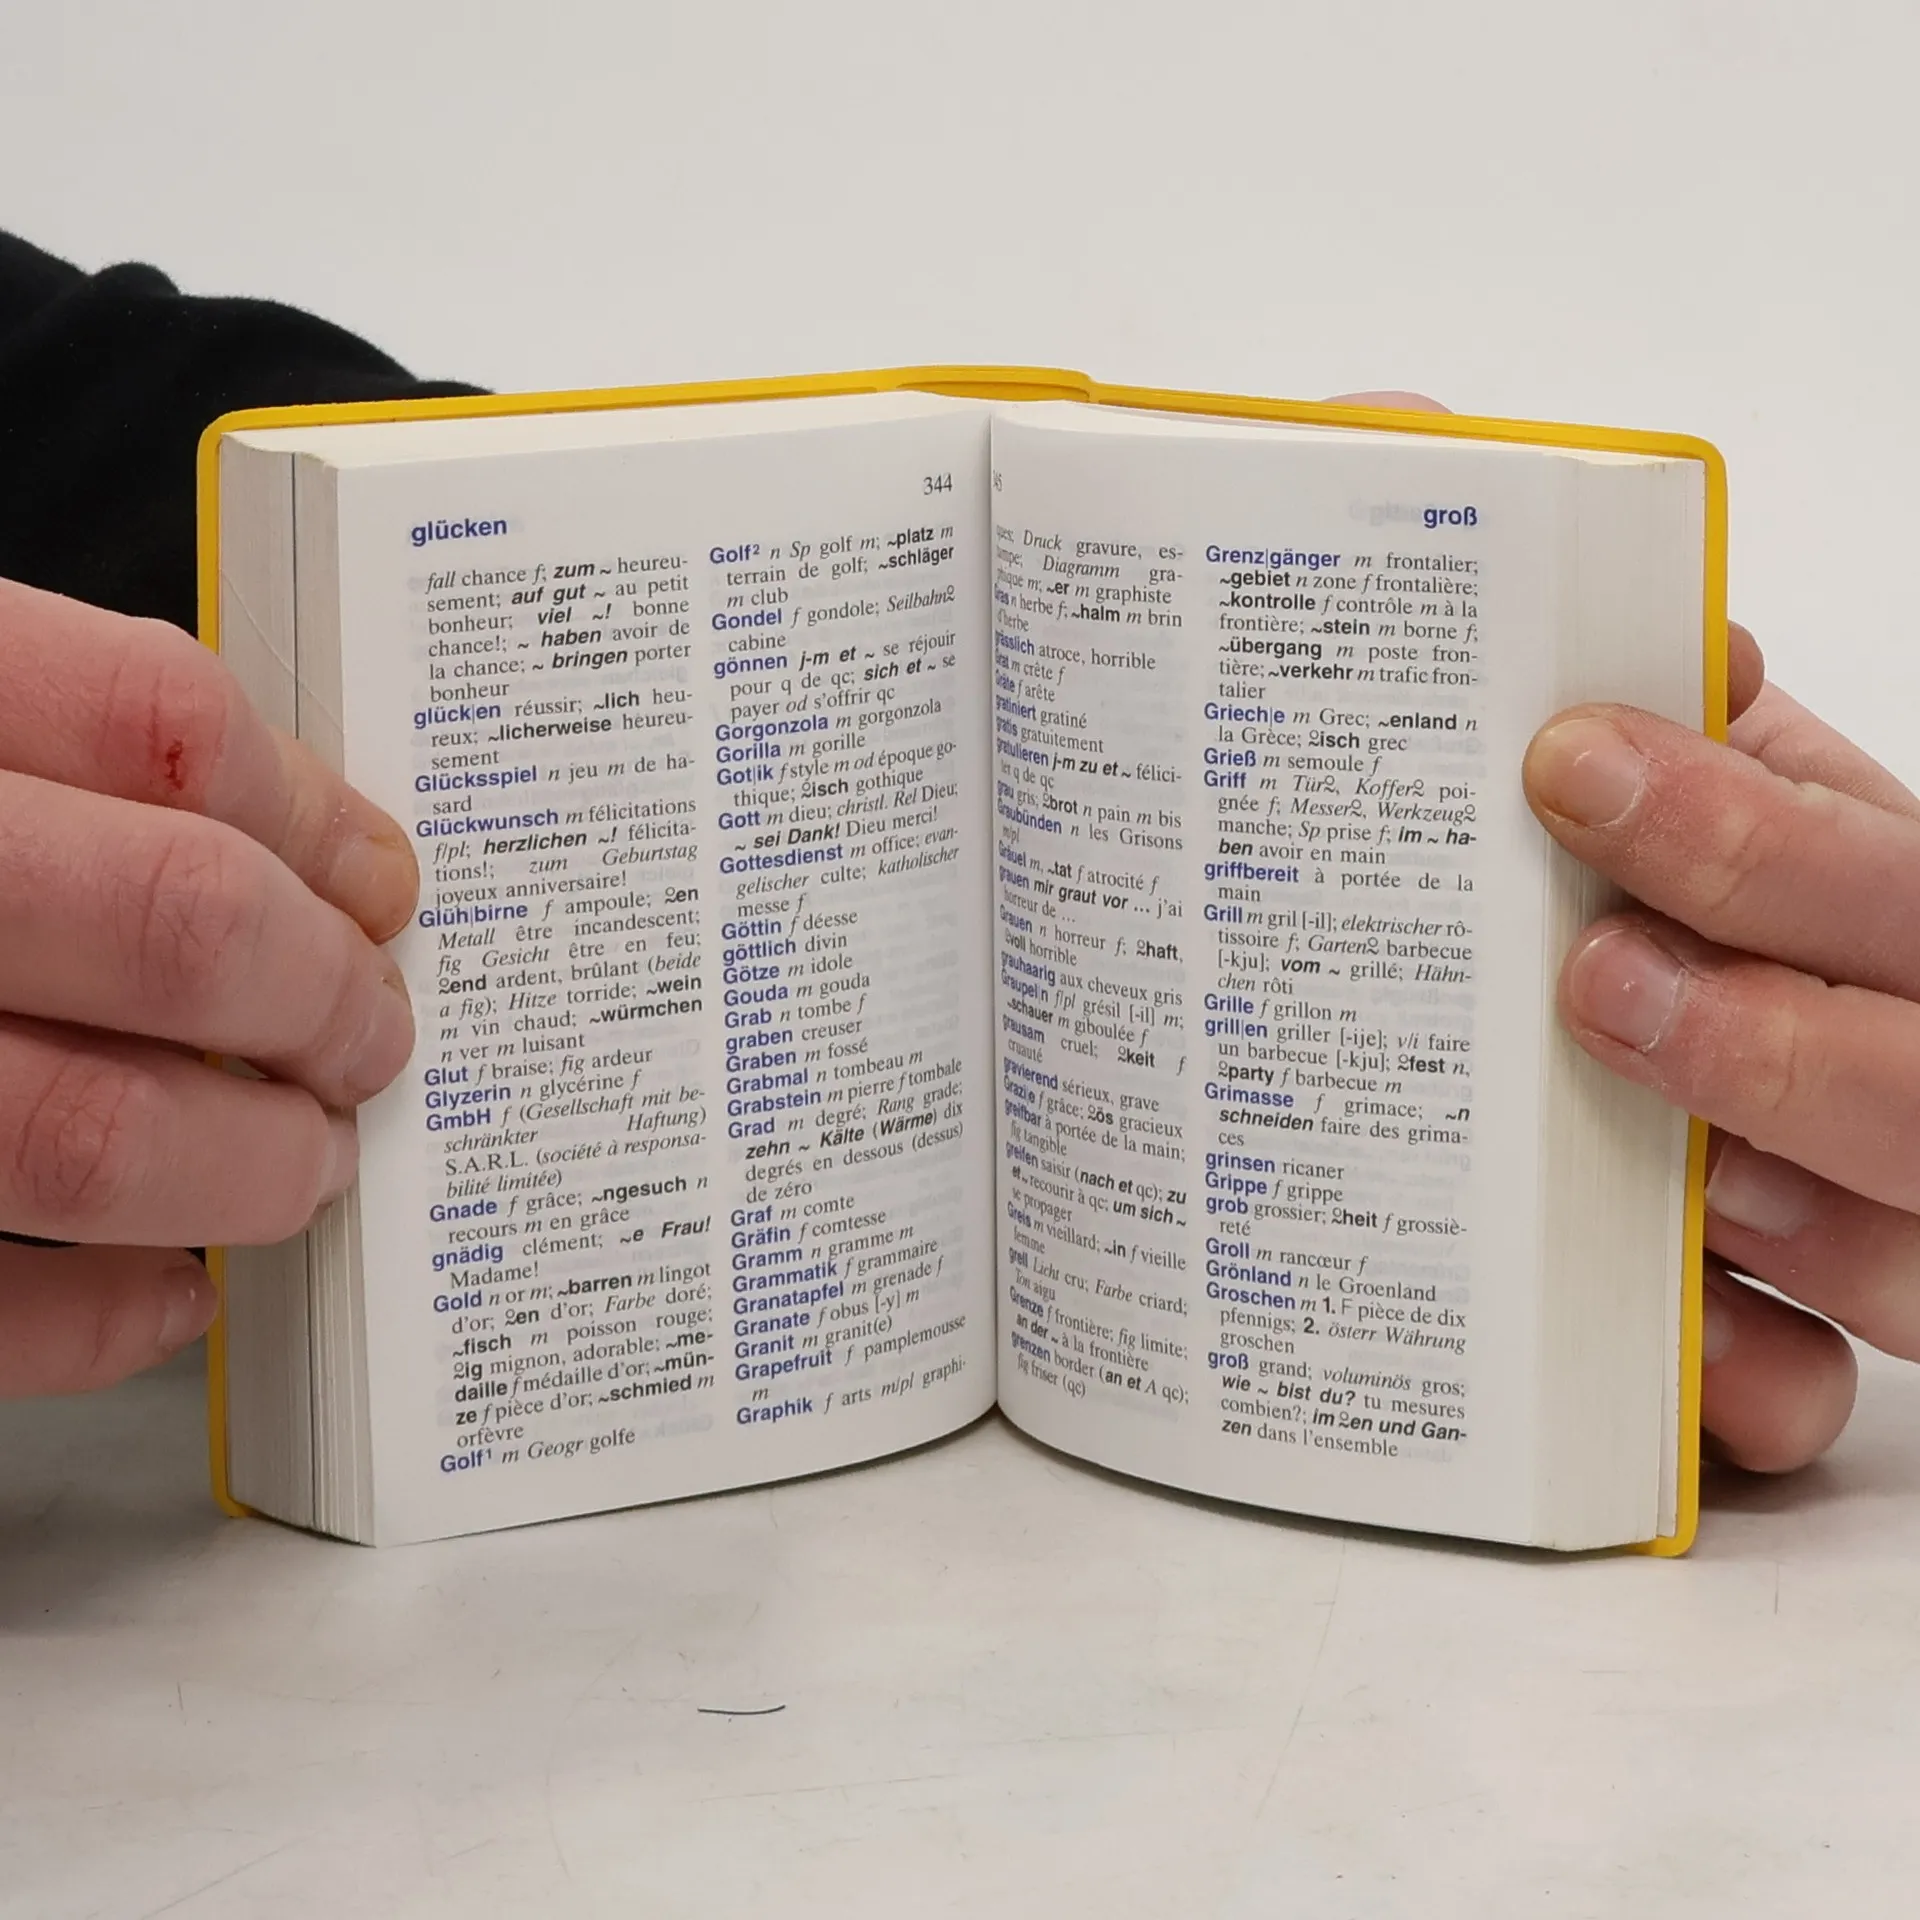 344
glücken
fall chance f; zum ~ heureu-
sement; auf gut ~ au petit
bonheur; viel ~! bonne
chance!; ~ haben avoir de
la chance; ~ bringen porter
bonheur
glück|en réussir; ~lich heu-
reux; ~licherweise heureu-
sement
Glücksspiel n jeu m de ha-
sard
Glückwunsch m félicitations
f/pl; herzlichen ~! félicita-
tions!; zum Geburtstag
joyeux anniversaire!
Glüh|birne f ampoule; 2en
Metall être incandescent;
fig Gesicht être en feu;
2end ardent, brûlant (beide
a fig); Hitze torride; ~wein
m vin chaud; ~würmchen
n ver m luisant
Glut f braise; fig ardeur
Glyzerin n glycérine f
GmbH f (Gesellschaft mit be-
schränkter Haftung)
S.A.R.L. (société à responsa-
bilité limitée)
Gnade f grâce; ~ngesuch n
recours m en grâce
gnädig clément; ~e Frau!
Madame!
Gold n or m; ~barren m lingot
d'or; 2en d'or; Farbe doré;
~fisch m poisson rouge;
2ig mignon, adorable; ~me-
daille f médaille d'or; ~mün-
ze f pièce d'or; ~schmied m
orfèvre
Golf¹ m Geogr golfe
Golf² n Sp golf m; ~platz m
terrain de golf; ~schläger
m club
Gondel f gondole; Seilbahn2
cabine
gönnen j-m et ~ se réjouir
pour q de qc; sich et ~ se
payer od s'offrir qc
Gorgonzola m gorgonzola
Gorilla m gorille
Got|ik f style m od époque go-
thique; 2isch gothique
Gott m dieu; christl. Rel Dieu;
~ sei Dank! Dieu merci!
Gottesdienst m office; evan-
gelischer culte; katholischer
messe f
Göttin f déesse
göttlich divin
Götze m idole
Gouda m gouda
Grab n tombe f
graben creuser
Graben m fossé
Grabmal n tombeau m
Grabstein m pierre f tombale
Grad m degré; Rang grade;
zehn ~ Kälte (Wärme) dix
degrés en dessous (dessus)
de zéro
Graf m comte
Gräfin f comtesse
Gramm n gramme m
Grammatik f grammaire
Granatapfel m grenade f
Granate f obus [-y] m
Granit m granit(e)
Grapefruit f pamplemousse
m
Graphik f arts m/pl graphi-
groß
Druck gravure, es-
Diagramm gra-
phique m; ~er m graphiste
Gras n herbe f; ~halm m brin
d'herbe
grässlich atroce, horrible
Grat m crête f
Gräte f arête
gratiniert gratiné
gratis gratuitement
gratulieren j-m zu et ~ félici-
ter q de qc
grau gris; 2brot n pain m bis
Graubünden n les Grisons
m/pl
Gräuel m, ~tat f atrocité f
grauen mir graut vor ... j'ai
horreur de ...
Grauen n horreur f; 2haft,
2voll horrible
grauhaarig aux cheveux gris
Graupel|n f/pl grésil [-il] m;
~schauer m giboulée f
grausam cruel; 2keit f
cruauté
gravierend sérieux, grave
Grazi|e f grâce; 2ös gracieux
greifbar à portée de la main;
fig tangible
greifen saisir (nach et qc); zu
et ~ recourir à qc; um sich ~
se propager
Greis m vieillard; ~in f vieille
femme
grell Licht cru; Farbe criard;
Ton aigu
Grenze f frontière; fig limite;
an der ~ à la frontière
grenzen border (an et A qc);
fig friser (qc)
Grenz|gänger m frontalier;
~gebiet n zone f frontalière;
~kontrolle f contrôle m à la
frontière; ~stein m borne f;
~übergang m poste fron-
tière; ~verkehr m trafic fron-
talier
Griech|e m Grec; ~enland n
la Grèce; 2isch grec
Grieß m semoule f
Griff m Tür2, Koffer2 poi-
gnée f; Messer2, Werkzeug2
manche; Sp prise f; im ~ ha-
ben avoir en main
griffbereit à portée de la
main
Grill m gril [-il]; elektrischer rô-
tissoire f; Garten2 barbecue
[-kju]; vom ~ grillé; Hähn-
chen rôti
Grille f grillon m
grill|en griller [-ije]; v/i faire
un barbecue [-kju]; 2fest n,
2party f barbecue m
Grimasse f grimace; ~n
schneiden faire des grima-
ces
grinsen ricaner
Grippe f grippe
grob grossier; 2heit f grossiè-
reté
Groll m rancœur f
Grönland n le Groenland
Groschen m 1. F pièce de dix
pfennigs; 2. österr Währung
groschen
groß grand; voluminös gros;
wie ~ bist du? tu mesures
combien?; im 2en und Gan-
zen dans l'ensemble